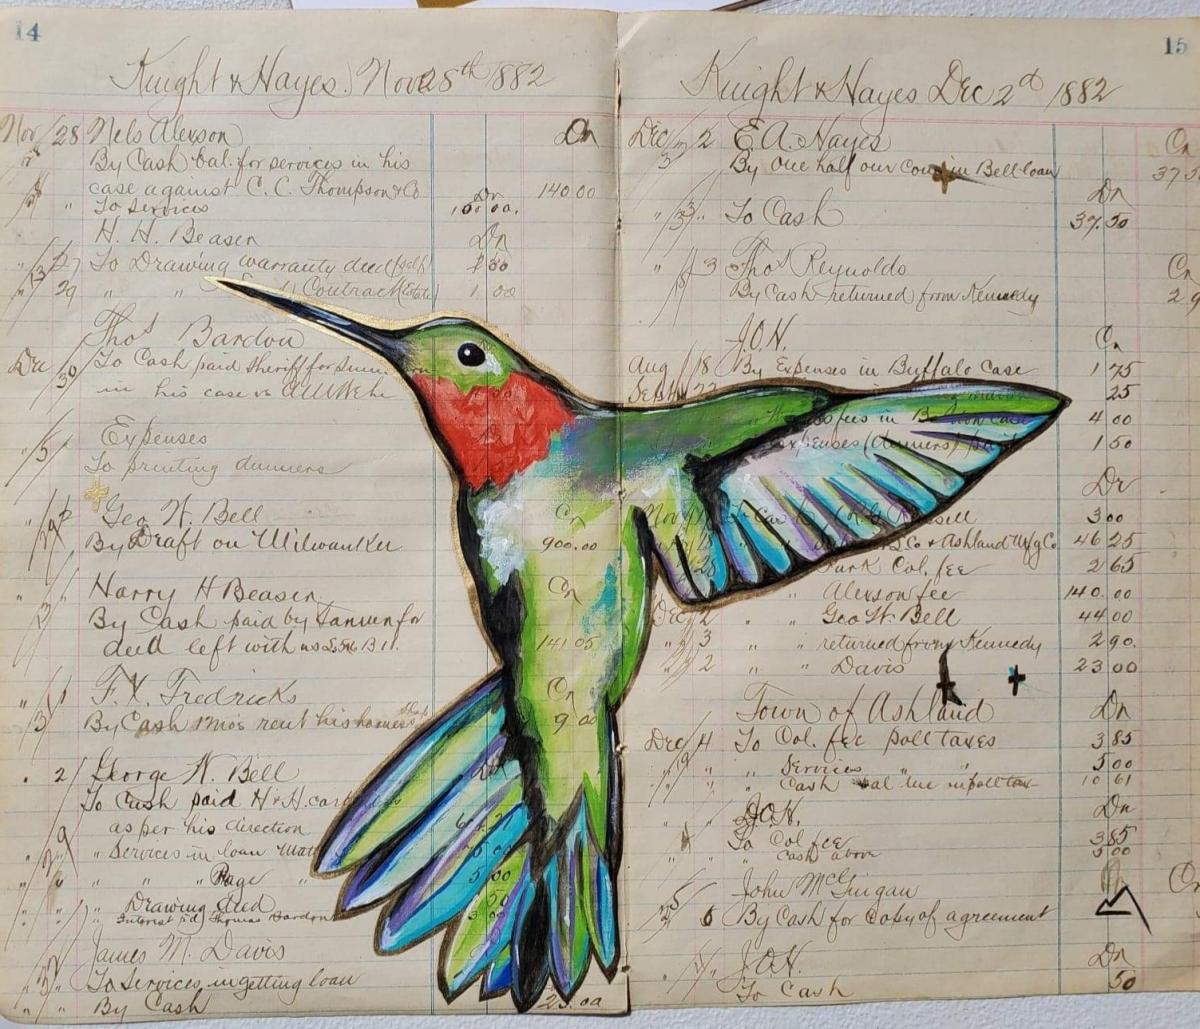 14
Knight & Hayes. Nov 28th 1882
Nov 28 Nels Alexson Dr
By Cash bal. for services in his
case against C. C. Thompson & Co 140.00
" To Services Dr
H. H. Beaser Dr
27 To Drawing warranty deed
29 " " Contract 1.00
Thos Bardon
Dec To Cash paid Sheriff for
30 in his case vs
Expenses
To printing dunners
Geo W. Bell Cr
By Draft on Milwaukee 900.00
Harry H Beaser Cr
By Cash paid by for
deed left with us 141 05
F. X. Fredricks Cr
By Cash 1 mo's rent his house 9 00
2 George W. Bell
To Cash paid H & H.
as per his direction
" Services in loan
" " Page "
" Drawing deed 50
" Interest pd Thomas Bardon 3 00
James M. Davis
To Services in getting loan
By Cash 25.00
15
Knight & Hayes Dec 2d 1882
Dec 2 E. A. Hayes Cr
3 By one half our com in Bell loan
Dr
" " To Cash 37.50
" 3 Thos Reynolds Cr
By Cash returned from Kennedy
J.O.H. Cr
Aug 18 By Expenses in Buffalo Case 1 75
Sept 22 25
fees in case 4 00
expenses (dunners) 1 50
Dr
Nov 3 00
Co & Ashland Mfg Co 46 25
Col. fee 2 65
" Alexson fee 140.00
Dec 2 " " Geo W. Bell 44 00
" 3 " " returned from Kennedy 2 90.
2 " " Davis 23 00
Town of Ashland Dr
Dec 4 To Col. fee poll taxes 3 85
" " Services " " 5 00
" " Cash bal due on poll tax 10 61
J.O.H. Dr
" To Col fee 3 85
" " Cash above 5 00
John McGuigan Cr
6 By Cash for Copy of agreement
" " J.O.H. Dr
To Cash 50